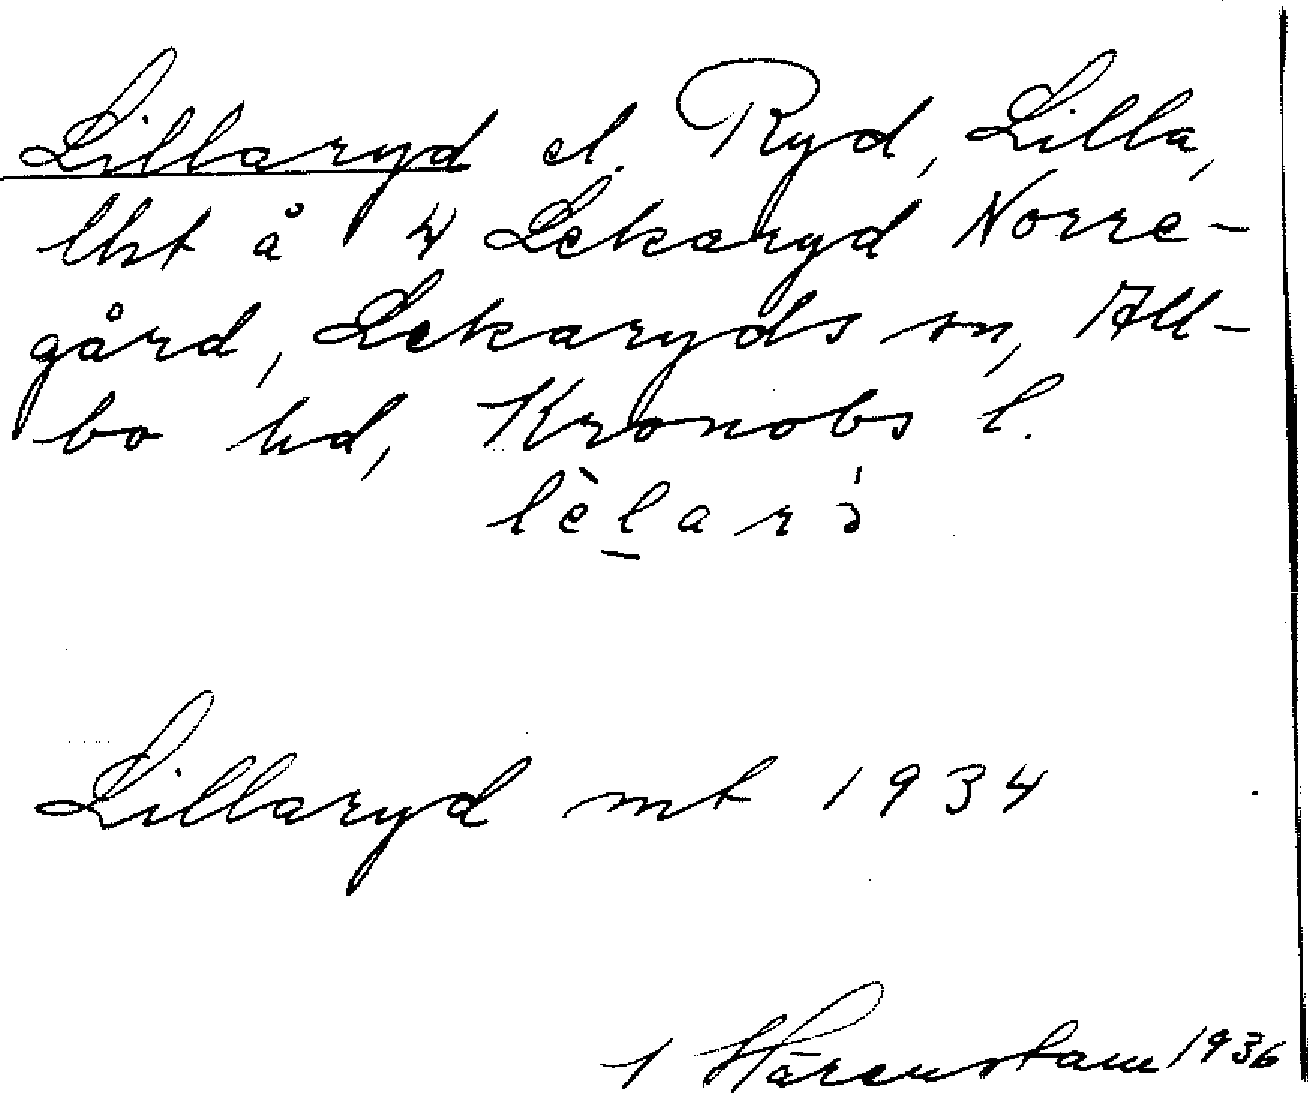 Lillaryd el. Ryd, Lilla,
lht å 4 Lekaryd Norre-
gård, Lekaryds sn, All-
bo hd, Kronobs l.
lèlarò
Lillaryd mt 1934
Härenstam 1936